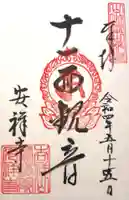 奉拝
令和四年五月十五日
十一面観音
安祥寺